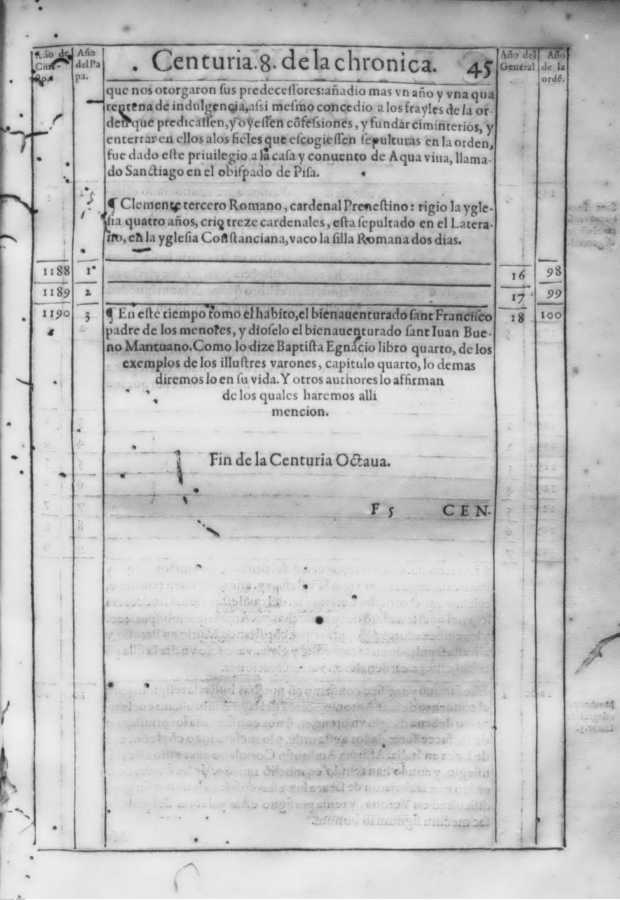 Año de Chri-sto.
Año del Pa pa.
Centuria. 8. de la chronica. 45
Año del General
Año de la ordẽ.
que nos otorgaron sus predecessores: añadio mas vn año y vna qua
rentena de indulgencia, assi mesmo concedio a los frayles de la or-
den que predicassen, y oyessen cõfessiones, y fundar ciminterios, y
enterrar en ellos alos fieles que escogiessen sepulturas en la orden,
fue dado este priuilegio a la casa y conuento de Aqua viua, llama-
do Sanctiago en el obispado de Pisa.
¶ Clemente tercero Romano, cardenal Prenestino: rigio la ygle-
sia quatro años, crio treze cardenales, esta sepultado en el Latera-
no, en la yglesia Cõstanciana, vaco la silla Romana dos dias.
1188 1 16 98
1189 2 17 99
1190 3 18 100
¶ En este tiempo tomo el habito, el bienauenturado sant Francisco
padre de los menores, y dioselo el bienauenturado sant Iuan Bue-
no Mantuano. Como lo dize Baptista Egnacio libro quarto, de los
exemplos de los illustres varones, capitulo quarto, lo demas
diremos lo en su vida. Y otros authores lo affirman
de los quales haremos alli
mencion.
Fin de la Centuria Octaua.
F 5 CEN-